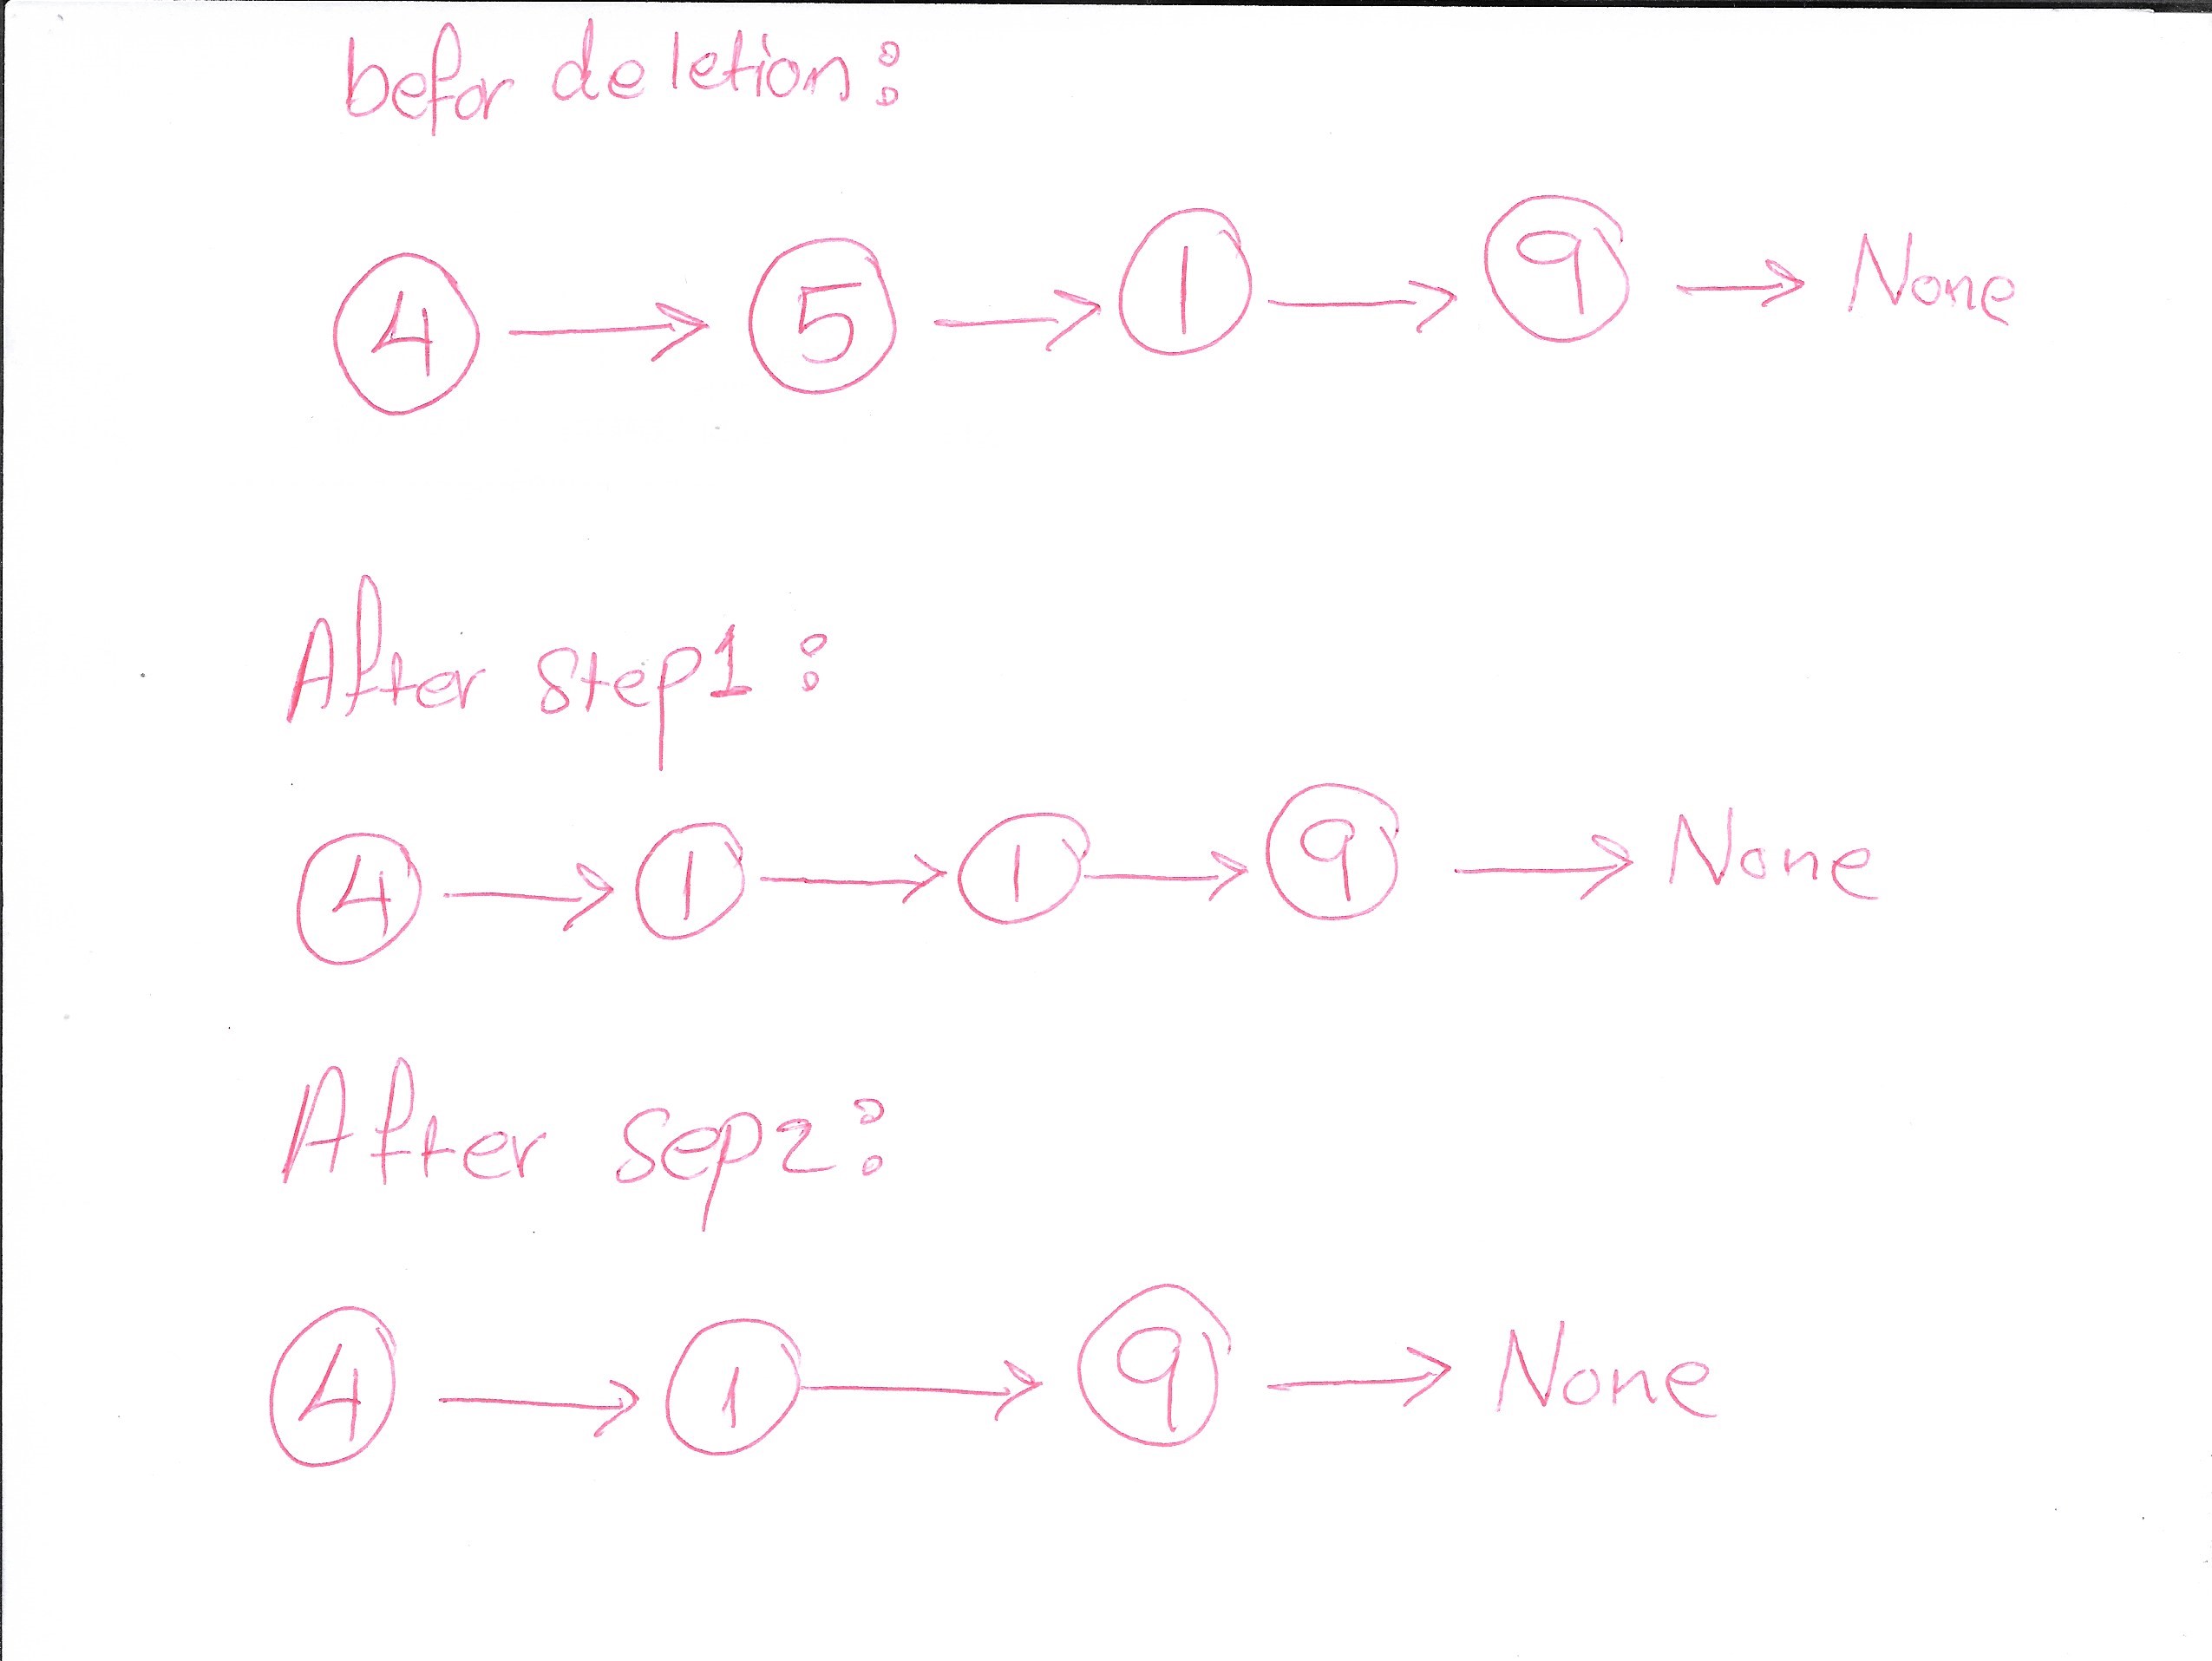 befor deletion:
4 → 5 → 1 → 9 → None
After step1:
4 → 1 → 1 → 9 → None
After sep2:
4 → 1 → 9 → None